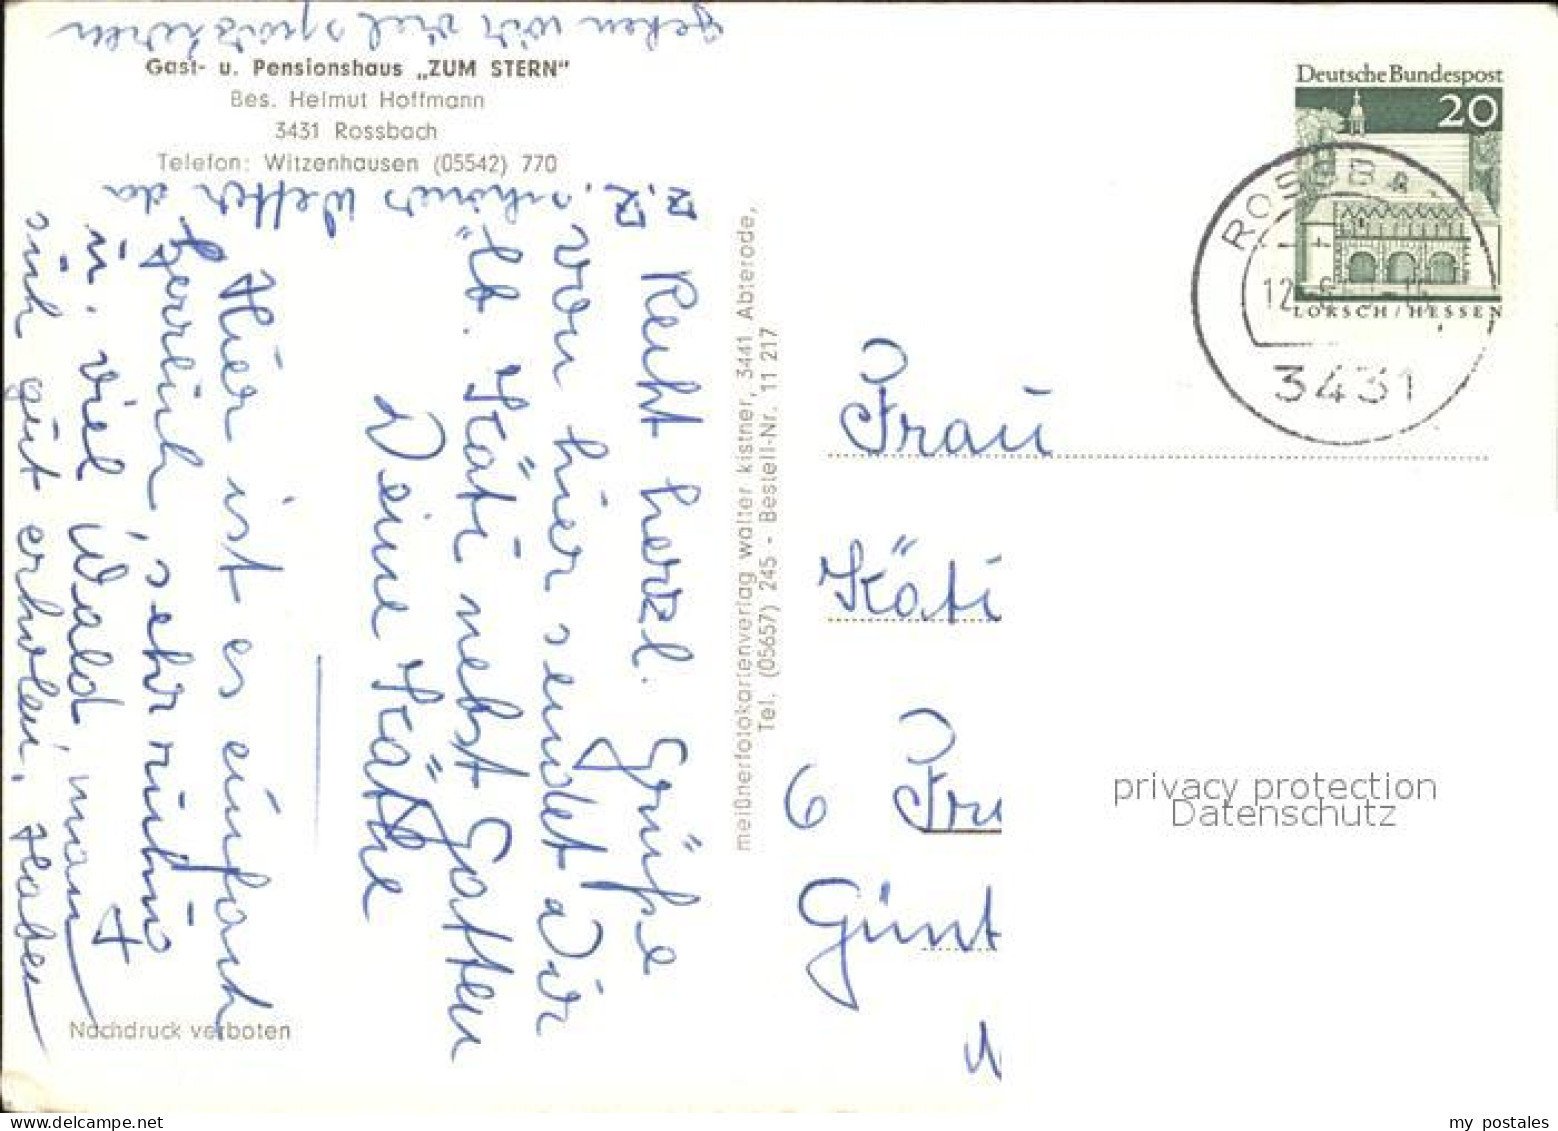 Gast- u. Pensionshaus „ZUM STERN"
Bes. Helmut Hoffmann
3431 Rossbach
Telefon: Witzenhausen (05542) 770
Recht herzl. Grüße
von hier sendet Dir
lb. Käti nebst Gatten
Deine Käthe
Hier ist es einfach
herrlich, sehr ruhig
u. viel Wald, man
sich gut erholen, Haben
z.Z. schönes Wetter da
gehen wir viel spazieren
Nachdruck verboten
meißnerfotokartenverlag walter kistner, 3441 Abterode,
Tel. (05657) 245 - Bestell-Nr. 11 217
Deutsche Bundespost
20
LORSCH / HESSEN
ROSSBA
12
3431
Frau
Käti
6 Fr
Günt
privacy protection
Datenschutz
my postales